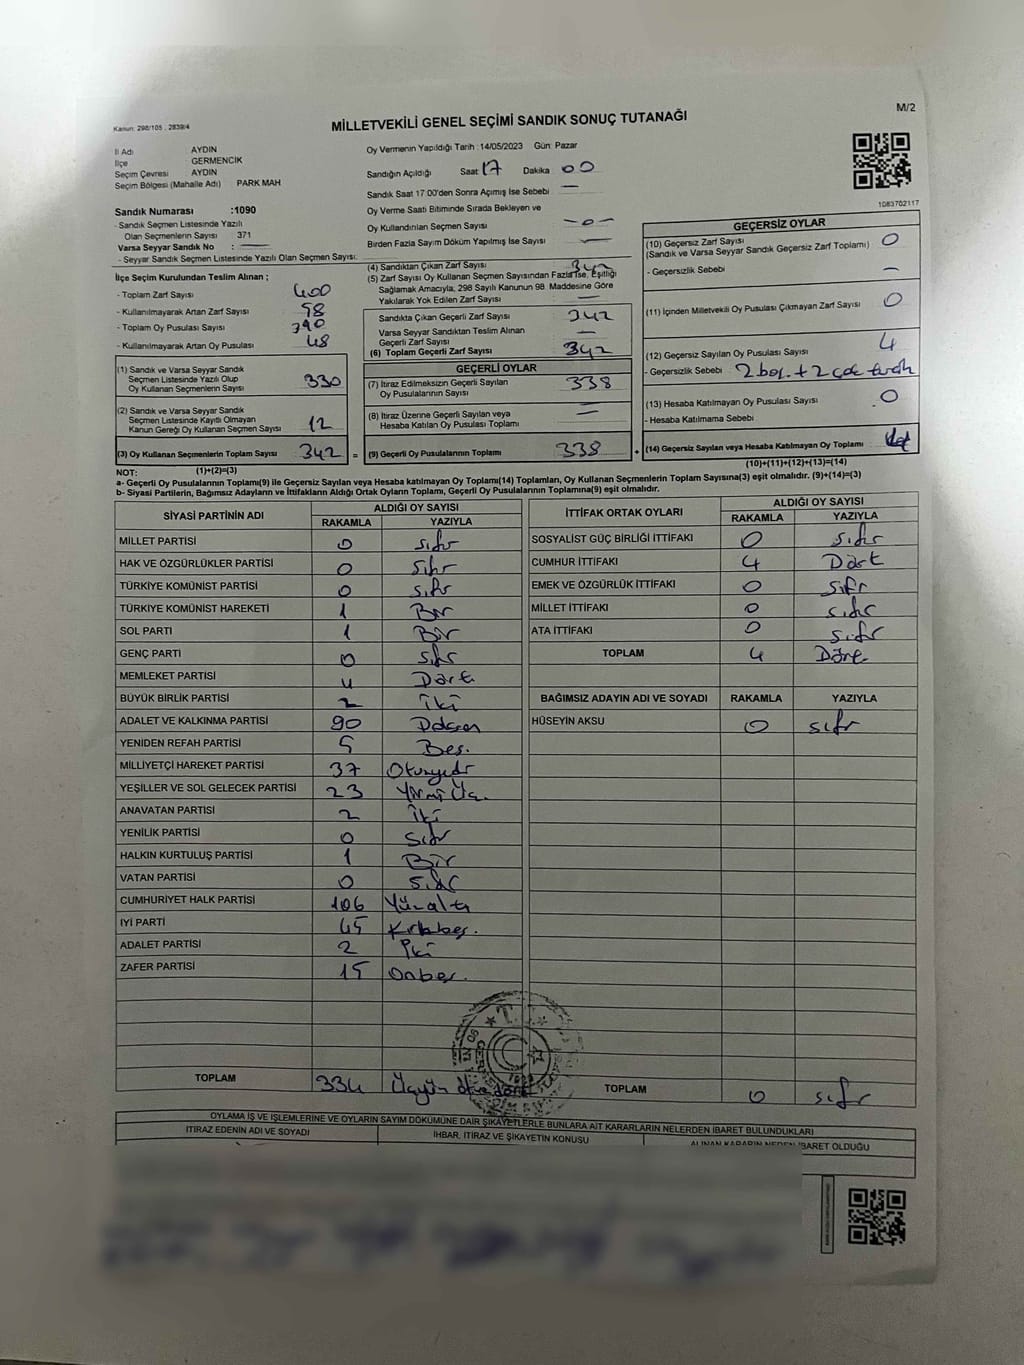 M/2
Kanun: 298/105 , 2839/4
MİLLETVEKİLİ GENEL SEÇİMİ SANDIK SONUÇ TUTANAĞI
İl Adı AYDIN
İlçe GERMENCİK
Seçim Çevresi AYDIN
Seçim Bölgesi (Mahalle Adı) PARK MAH
Sandık Numarası :1090
- Sandık Seçmen Listesinde Yazılı
Olan Seçmenlerin Sayısı 371
Varsa Seyyar Sandık No : —
- Seyyar Sandık Seçmen Listesinde Yazılı Olan Seçmen Sayısı:
Oy Vermenin Yapıldığı Tarih :14/05/2023 Gün: Pazar
Sandığın Açıldığı Saat 17 Dakika 00
Sandık Saat 17:00'den Sonra Açımış İse Sebebi —
Oy Verme Saati Bitiminde Sırada Bekleyen ve
Oy Kullandırılan Seçmen Sayısı -0-
Birden Fazla Sayım Döküm Yapılmış İse Sayısı —
1083702117
İlçe Seçim Kurulundan Teslim Alınan ;
- Toplam Zarf Sayısı 400
- Kullanılmayarak Artan Zarf Sayısı 58
- Toplam Oy Pusulası Sayısı 390
- Kullanılmayarak Artan Oy Pusulası 48
(1) Sandık ve Varsa Seyyar Sandık
Seçmen Listesinde Yazılı Olup
Oy Kullanan Seçmenlerin Sayısı 330
(2) Sandık ve Varsa Seyyar Sandık
Seçmen Listesinde Kayıtlı Olmayan
Kanun Gereği Oy Kullanan Seçmen Sayısı 12
(3) Oy Kullanan Seçmenlerin Toplam Sayısı 342 =
(4) Sandıktan Çıkan Zarf Sayısı 342
(5) Zarf Sayısı Oy Kullanan Seçmen Sayısından Fazla İse, Eşitliği
Sağlamak Amacıyla, 298 Sayılı Kanunun 98. Maddesine Göre
Yakılarak Yok Edilen Zarf Sayısı —
Sandıkta Çıkan Geçerli Zarf Sayısı 342
Varsa Seyyar Sandıktan Teslim Alınan
Geçerli Zarf Sayısı —
(6) Toplam Geçerli Zarf Sayısı 342
GEÇERLİ OYLAR
(7) İtiraz Edilmeksizin Geçerli Sayılan
Oy Pusulalarının Sayısı 338
(8) İtiraz Üzerine Geçerli Sayılan veya
Hesaba Katılan Oy Pusulası Toplamı —
(9) Geçerli Oy Pusulalarının Toplamı 338 +
GEÇERSİZ OYLAR
(10) Geçersiz Zarf Sayısı 0
(Sandık ve Varsa Seyyar Sandık Geçersiz Zarf Toplamı)
- Geçersizlik Sebebi —
(11) İçinden Milletvekili Oy Pusulası Çıkmayan Zarf Sayısı 0
(12) Geçersiz Sayılan Oy Pusulası Sayısı 4
- Geçersizlik Sebebi 2 boş + 2 çok tercih
(13) Hesaba Katılmayan Oy Pusulası Sayısı 0
- Hesaba Katılmama Sebebi
(14) Geçersiz Sayılan veya Hesaba Katılmayan Oy Toplamı
NOT: (1)+(2)=(3) (10)+(11)+(12)+(13)=(14)
a- Geçerli Oy Pusulalarının Toplamı(9) ile Geçersiz Sayılan veya Hesaba katılmayan Oy Toplamı(14) Toplamları, Oy Kullanan Seçmenlerin Toplam Sayısına(3) eşit olmalıdır. (9)+(14)=(3)
b- Siyasi Partilerin, Bağımsız Adayların ve İttifakların Aldığı Ortak Oyların Toplamı, Geçerli Oy Pusulalarının Toplamına(9) eşit olmalıdır.
SİYASİ PARTİNİN ADI ALDIĞI OY SAYISI
RAKAMLA YAZIYLA
MİLLET PARTİSİ 0 sıfır
HAK VE ÖZGÜRLÜKLER PARTİSİ 0 Sıfır
TÜRKİYE KOMÜNİST PARTİSİ 0 Sıfır
TÜRKİYE KOMÜNİST HAREKETİ 1 Bir
SOL PARTİ 1 Bir
GENÇ PARTİ 0 Sıfır
MEMLEKET PARTİSİ 4 Dört
BÜYÜK BİRLİK PARTİSİ 2 İki
ADALET VE KALKINMA PARTİSİ 90 Doksan
YENİDEN REFAH PARTİSİ 5 Beş.
MİLLİYETÇİ HAREKET PARTİSİ 37 Otuzyedi
YEŞİLLER VE SOL GELECEK PARTİSİ 23 Yirmi Üç.
ANAVATAN PARTİSİ 2 İki
YENİLİK PARTİSİ 0 Sıfır
HALKIN KURTULUŞ PARTİSİ 1 Bir
VATAN PARTİSİ 0 Sıfır
CUMHURİYET HALK PARTİSİ 106 Yüzaltı
İYİ PARTİ 45 Kırkbeş.
ADALET PARTİSİ 2 İki
ZAFER PARTİSİ 15 Onbeş.
TOPLAM 334
İTTİFAK ORTAK OYLARI ALDIĞI OY SAYISI
RAKAMLA YAZIYLA
SOSYALİST GÜÇ BİRLİĞİ İTTİFAKI 0 Sıfır
CUMHUR İTTİFAKI 4 Dört
EMEK VE ÖZGÜRLÜK İTTİFAKI 0 Sıfır
MİLLET İTTİFAKI 0 sıfır
ATA İTTİFAKI 0 sıfır
TOPLAM 4 Dört
BAĞIMSIZ ADAYIN ADI VE SOYADI RAKAMLA YAZIYLA
HÜSEYİN AKSU 0 sıfır
TOPLAM 0 sıfır
OYLAMA İŞ VE İŞLEMLERİNE VE OYLARIN SAYIM DÖKÜMÜNE DAİR ŞİKAYETLERLE BUNLARA AİT KARARLARIN NELERDEN İBARET BULUNDUKLARI
İTİRAZ EDENİN ADI VE SOYADI İHBAR, İTİRAZ VE ŞİKAYETİN KONUSU ALINAN KARARIN NEDEN İBARET OLDUĞU